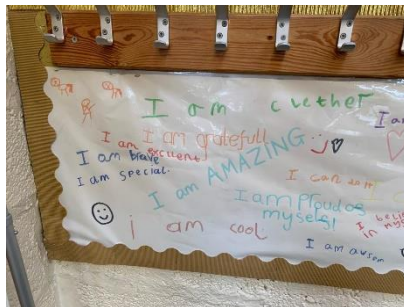 I am clether
I am
I am gratefull
I am excellent
I am brave
I am special.
I am AMAZING
I can
I am Proud os
myself!
I belie
in mys
i am cool
I am ausom